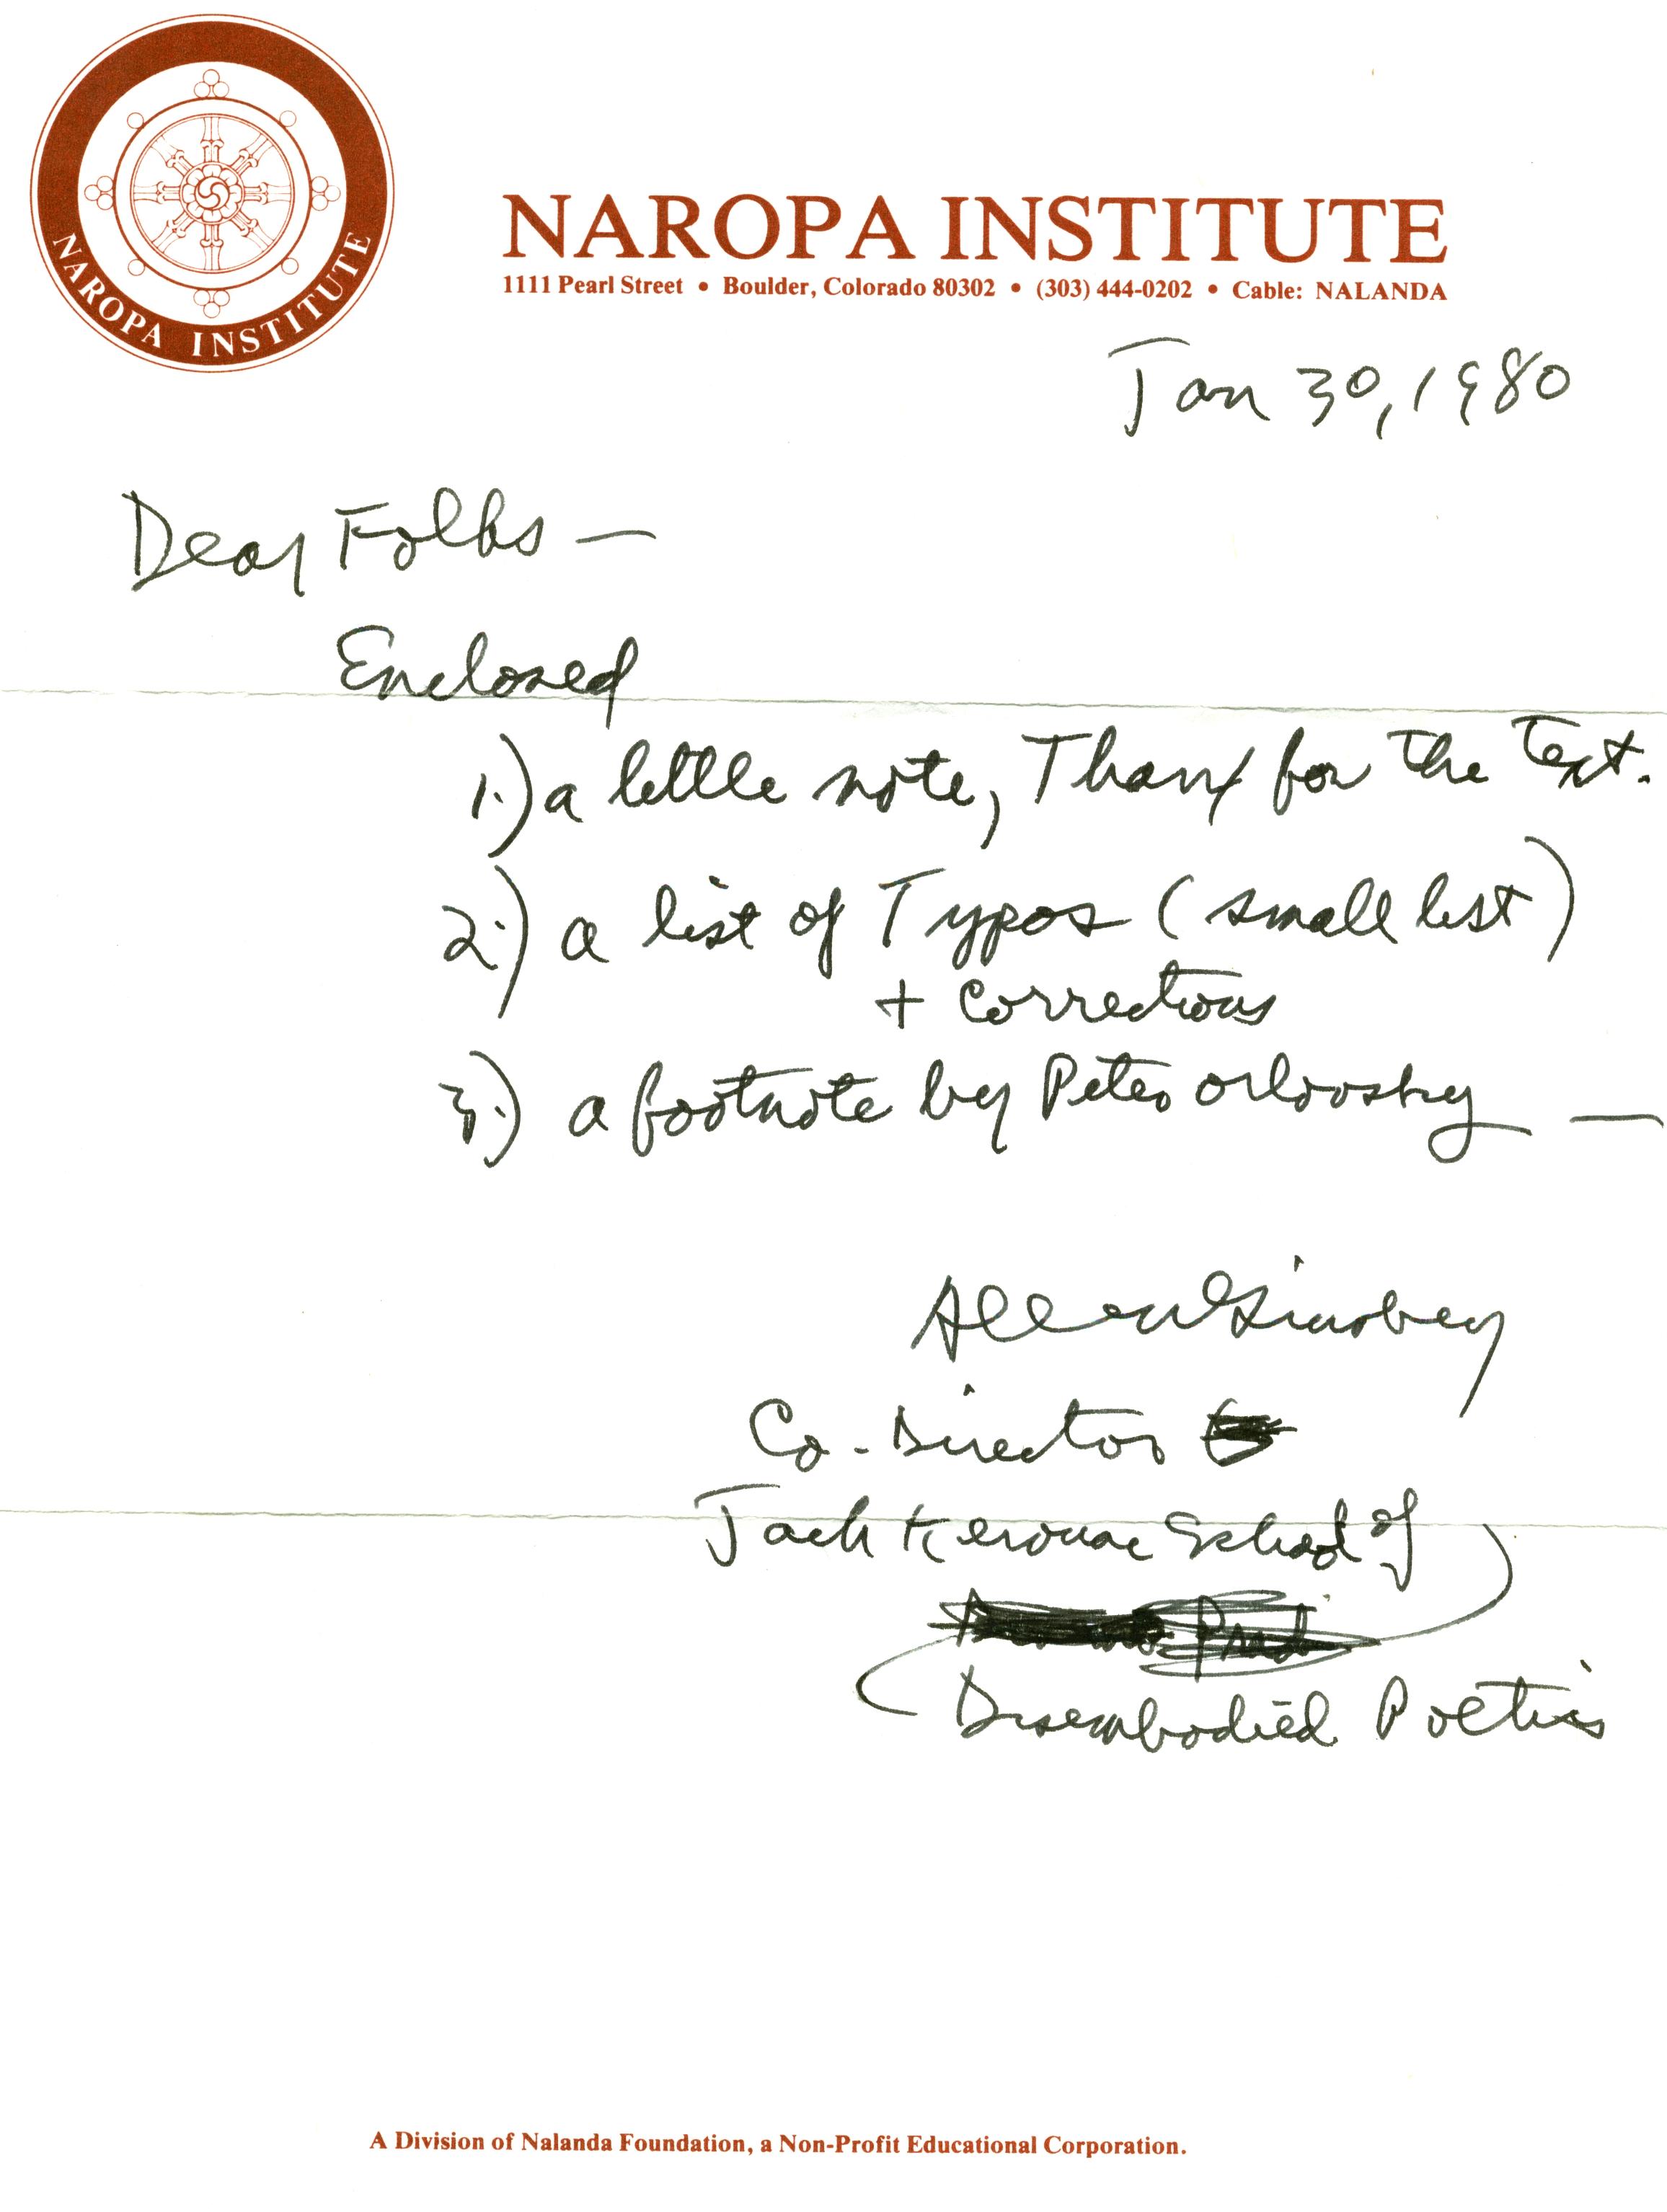 NAROPA INSTITUTE
NAROPA INSTITUTE
1111 Pearl Street • Boulder, Colorado 80302 • (303) 444-0202 • Cable: NALANDA
Jan 30, 1980
Dear Folks —
Enclosed
1.) a little note, Thanx for the Text.
2.) a list of Typos (small list)
+ Corrections
3.) a footnote by Peter Orlovsky —
Allen Ginsberg
Co-Director
Jack Kerouac School of
Disembodied Poetics
A Division of Nalanda Foundation, a Non-Profit Educational Corporation.